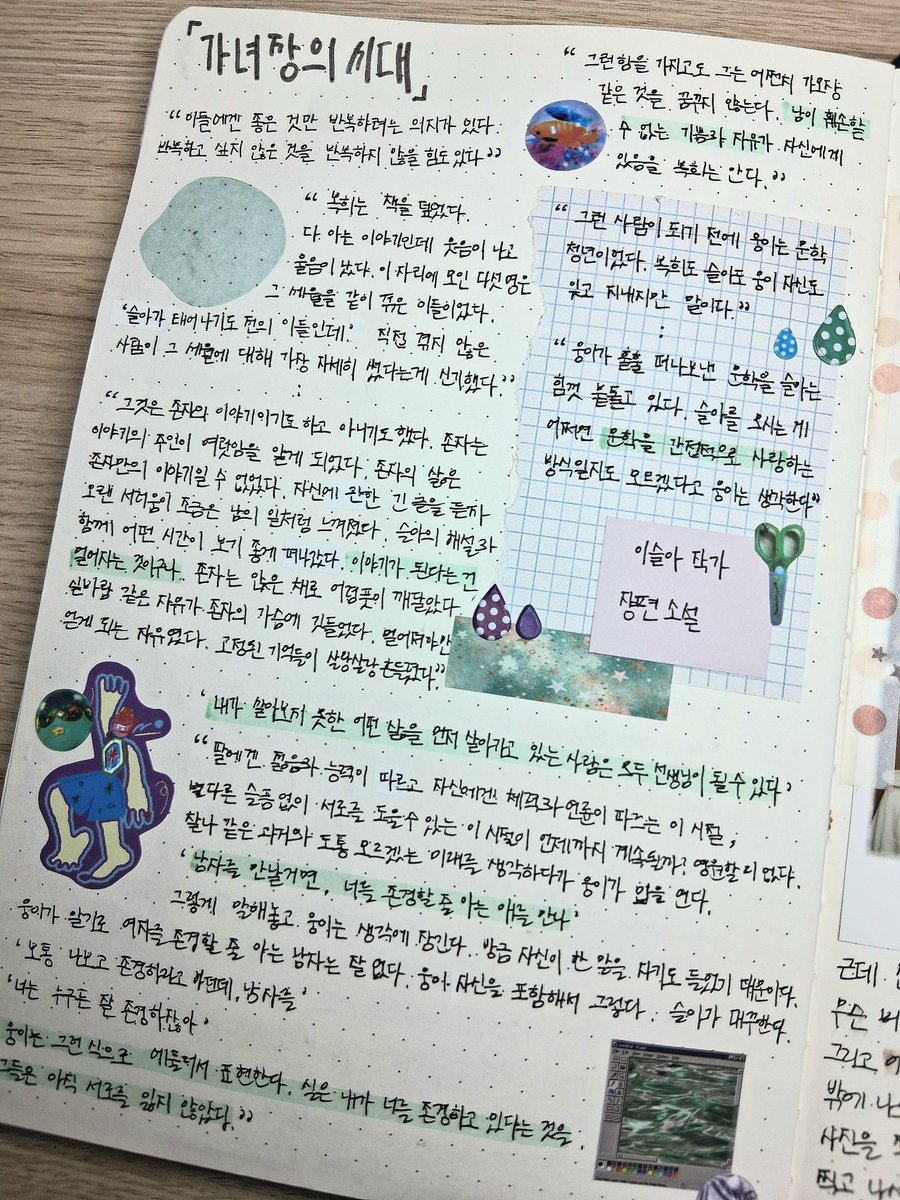 「가녀장의 시대」
“이들에겐 좋은 것만 반복하려는 의지가 있다.
반복하고 싶지 않은 것을 반복하지 않을 힘도 있다”
“복희는 책을 덮었다.
다 아는 이야기인데 웃음이 나고
울음이 났다. 이 자리에 모인 다섯 명은
그 세월을 같이 겪은 이들이었다.
‘슬아가 태어나기도 전의 이들인데.’ 직접 겪지 않은
사람이 그 세월에 대해 가장 자세히 썼다는게 신기했다.”
:
“그것은 존자의 이야기이기도 하고 아니기도 했다. 존자는
이야기의 주인이 여럿임을 알게 되었다. 존자의 삶은
존자만의 이야기일 수 없었다. 자신에 관한 긴 글을 듣자
오랜 서러움이 조금은 남의 일처럼 느껴졌다. 슬아의 해설과
함께 어떤 시간이 보기 좋게 떠나갔다. 이야기가 된다는 건
멀어지는 것이구나. 존자는 앉은 채로 어렴풋이 깨달았다.
실바람 같은 자유가 존자의 가슴에 깃들었다. 멀어져야만
얻게 되는 자유였다. 고정된 기억들이 살랑살랑 흔들렸다.”
“그런 힘을 가지고도 그는 어쩐지 가모장
같은 것을 꿈꾸지 않는다. 남이 훼손할
수 없는 기쁨과 자유가 자신에게
있음을 복희는 안다.”
“그런 사람이 되기 전에 웅이는 문학
청년이었다. 복희도 슬아도 웅이 자신도
잊고 지내지만 말이다.”
:
“웅이가 훌훌 떠나보낸 문학을 슬아는
힘껏 붙들고 있다. 슬아를 모시는 게
어쩌면 문학을 간접적으로 사랑하는
방식일지도 모르겠다고 웅이는 생각한다”
이슬아 작가
장편 소설
‘내가 살아보지 못한 어떤 삶을 먼저 살아가고 있는 사람은 모두 선생님이 될 수 있다’
“딸에겐 젊음과 능력이 따르고 자신에겐 체력과 연륜이 따르는 이 시절,
별다른 슬픔 없이 서로를 도울 수 있는 이 시절이 언제까지 계속될까? 영원할 리 없다.
찰나 같은 과거와 도통 모르겠는 미래를 생각하다가 웅이가 입을 연다.
‘남자를 만날거면, 너를 존경할 줄 아는 애를 만나’
그렇게 말해놓고 웅이는 생각에 잠긴다. 방금 자신이 한 말을 자기도 들었기 때문이다.
웅이가 알기로 여자를 존경할 줄 아는 남자는 잘 없다. 웅이 자신을 포함해서 그렇다. 슬아가 대꾸한다.
‘보통 나보고 존경하라고 하던데, 남자를’
‘너는 누구든 잘 존경하잖아’
웅이는 그런 식으로 에둘러서 표현한다. 실은 내가 너를 존경하고 있다는 것을.
그들은 아직 서로를 잃지 않았다.”
근데
무슨
그리고
밖에
사진을
찍고